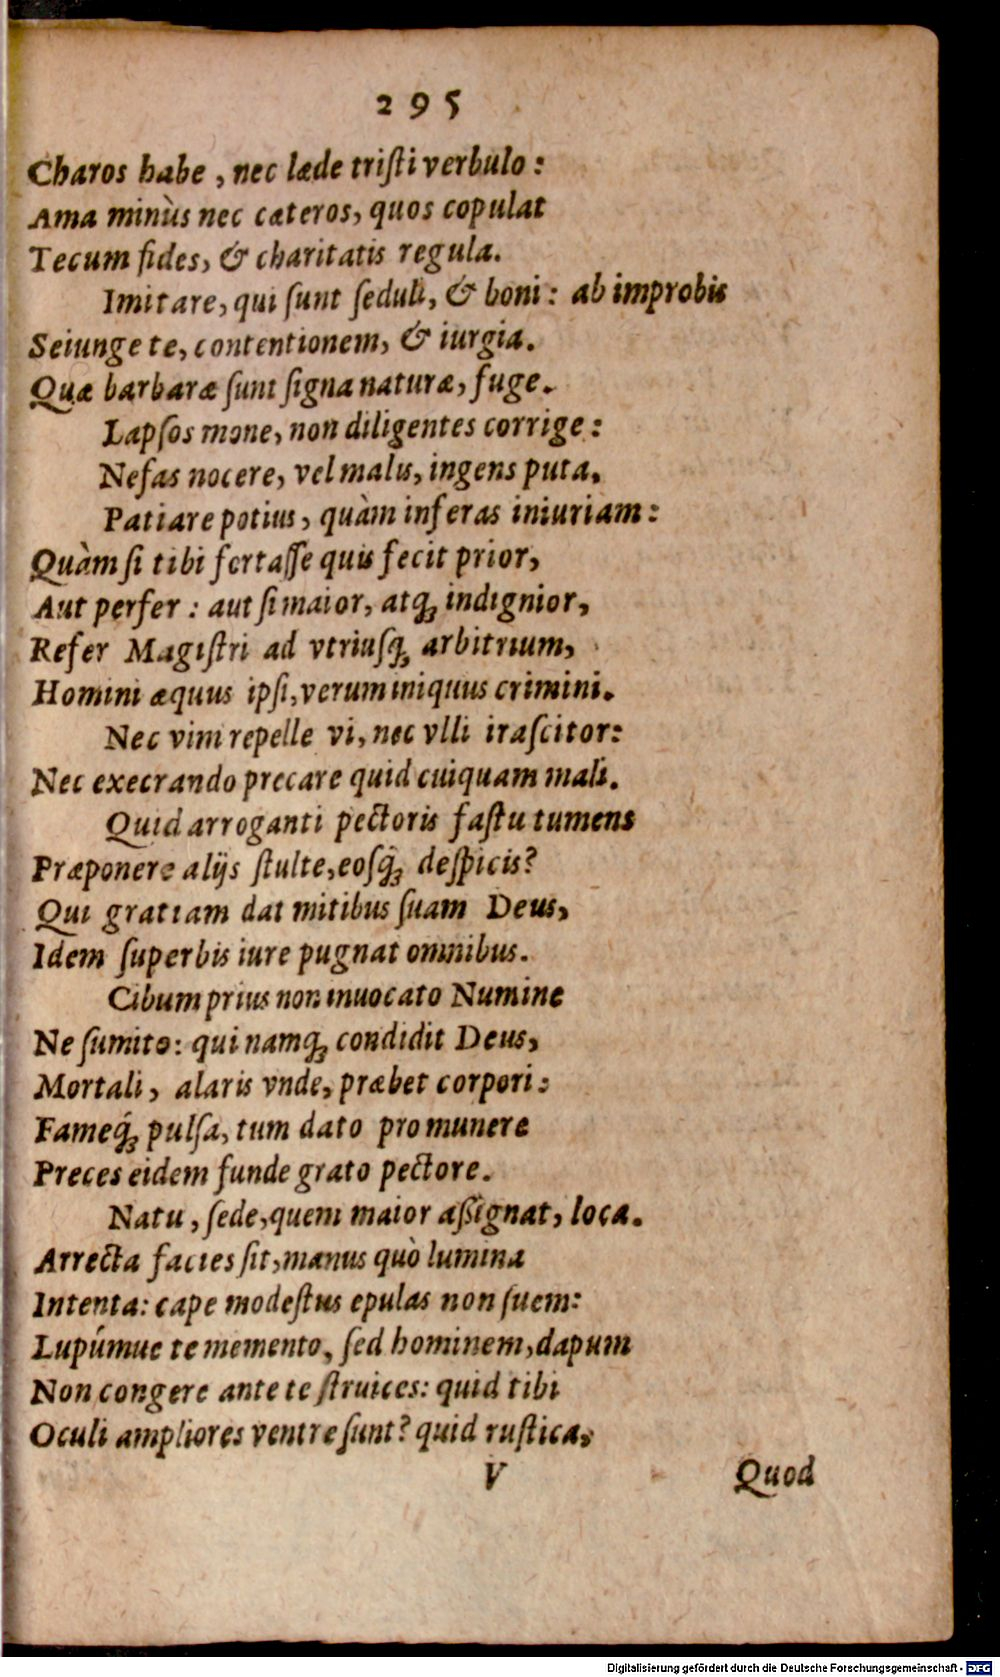 295
Charos habe, nec læde tristi verbulo:
Ama minùs nec cæteros, quos copulat
Tecum fides, & charitatis regula.
Imitare, qui sunt seduli, & boni: ab improbis
Seiunge te, contentionem, & iurgia.
Quæ barbaræ sunt signa naturæ, fuge.
Lapsos mone, non diligentes corrige:
Nefas nocere, vel malis, ingens puta.
Patiare potius, quàm inferas iniuriam:
Quàm si tibi fortasse quis fecit prior,
Aut perfer: aut si maior, atq́; indignior,
Refer Magistri ad vtriusq́; arbitrium,
Homini æquus ipsi, verum iniquus crimini.
Nec vim repelle vi, nec vlli irascitor:
Nec execrando precare quid cuiquam mali.
Quid arroganti pectoris fastu tumens
Præponere alijs stulte, eosq́; despicis?
Qui gratiam dat mitibus suam Deus,
Idem superbis iure pugnat omnibus.
Cibum prius non inuocato Numine
Ne sumito: qui namq́; condidit Deus,
Mortali, alaris vnde, præbet corpori:
Fameq́; pulsa, tum dato pro munere
Preces eidem funde grato pectore.
Natu, sede, quem maior assignat, loca.
Arrecta facies sit, manus quò lumina
Intenta: cape modestus epulas non suem:
Lupúmue te memento, sed hominem, dapum
Non congere ante te struices: quid tibi
Oculi ampliores ventre sunt? quid rustica,
V Quod
Digitalisierung gefördert durch die Deutsche Forschungsgemeinschaft - DFG